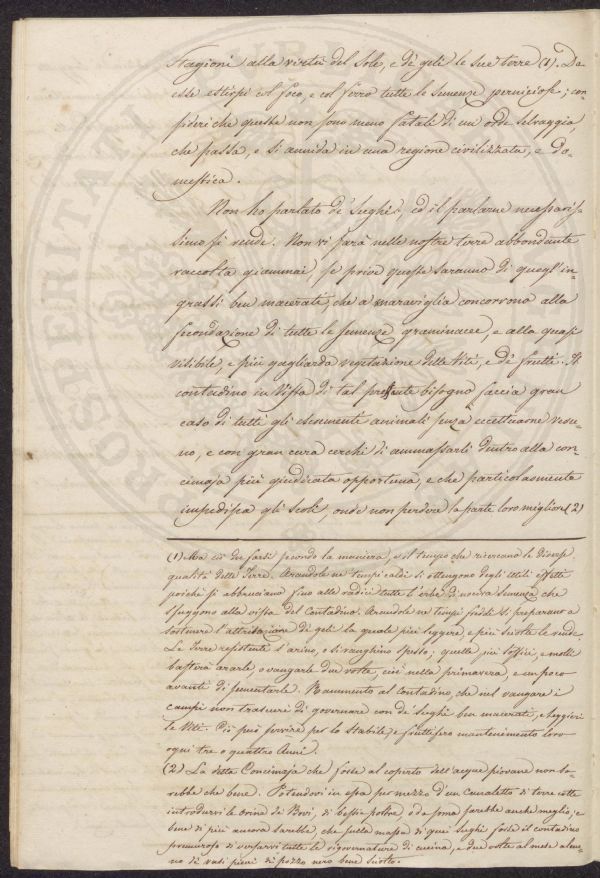 Stagioni alla virtù del Sole, e dè geli le sue terre (1). Da
esse estirpi col foco, e col ferro tutte le semenze perniciose; con-
sideri che queste non sono meno fatali di un' orde selvaggia,
che passa, e si annida in una regione civilizzata, e do-
mestica.
Non ho parlato dè Sughi, ed il parlarne necessaris-
simo si rende. Non vi sarà nelle nostre terre abbondante
raccolta giammai, se prive queste saranno di quegl' in-
grassi ben macerati, che a maraviglia concorrono alla
fecondazione di tutte le semenze graminacee, e alla quasi
visibile, e più gagliarda vegetazione delle Viti, e dè frutti. Il
contadino in vista di tal presente bisogno faccia gran
caso di tutti gli escrementi animali senza eccettuarne veru-
no, e con gran cura cerchi di ammassarli dentro alla con-
cimaja più giudicata opportuna, e che particolarmente
impedisca gli scoli, onde non perdere la parte loro migliore (2)
(1) Ma ciò dee farsi secondo la maniera, e il tempo che ricercano le diverse
qualità delle Terre. Arandole ne' tempi caldi si ottengono degli utili effetti
poichè si abbruciano fino alle radici tutte l' erbe di nociva semenza, che
sfuggono alla vista del Contadino. Arandole ne' tempi freddi si preparano a
sostenere l' attritazione di geli la quale più leggere, e più sciolte le rende.
Le Terre resistenti s' arino, e si vanghino spesso; quelle più soffici, e molli
basterà ararle, o vangarle due volte, cioè nella primavera, e un poco
avanti di sementarle. Rammento al Contadino, che nel vangare i
campi non trascuri di governare con dè sughi ben macerati, e leggieri
le Viti. Ciò può servire per lo stabile, e fruttifero mantenimento loro
ogni tre o quattro Anni.
(2) La detta Concimaja che fosse al coperto dell' acque piovane non sa-
rebbe che bene. Potendovi in essa per mezzo d' un canaletto di terre cotte
introdurvi le orine dè Bovi, di bestie poltre, o da soma sarebbe anche meglio; e
bene di più ancora sarebbe, che sulla massa di quei sughi fosse il contadino
premuroso di versarvi tutte le rigovernature di cucina, e due volte al mese alme-
no dè vasi pieni di pozzo nero bene sciolto.